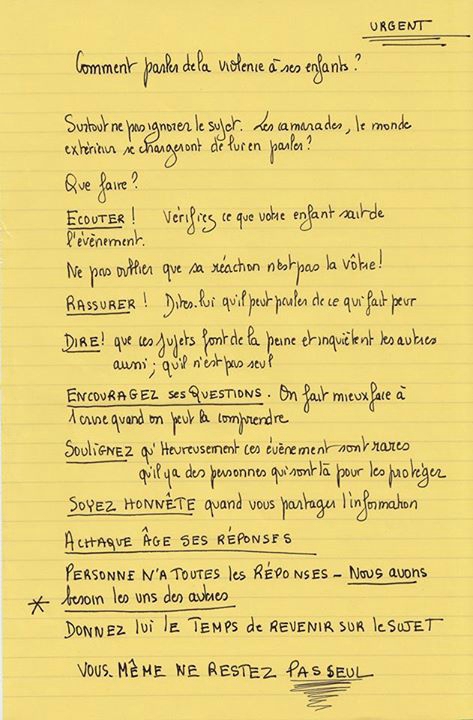 URGENT
Comment parler de la violence à ses enfants ?
Surtout ne pas ignorer le sujet. Les camarades, le monde
extérieur se chargeront de lui en parler ?
Que faire ?
ECOUTER ! Vérifiez ce que votre enfant sait de
l'évènement.
Ne pas oublier que sa réaction n'est pas la vôtre !
RASSURER ! Dites-lui qu'il peut parler de ce qui fait peur
DIRE ! que ces sujets font de la peine et inquiètent les autres
aussi ; qu'il n'est pas seul
ENCOURAGEZ ses QUESTIONS. On fait mieux face à
1 crise quand on peut la comprendre
SOULIGNEZ qu'Heureusement ces évènement sont rares
qu'il y a des personnes qui sont là pour les protéger
SOYEZ HONNÊTE quand vous partager l'information
A CHAQUE ÂGE SES RÉPONSES
PERSONNE N'A TOUTES les RÉPONSES - Nous avons
* besoin les uns des autres
DONNEZ lui lE TEMPS de REVENIR SUR le SUJET
VOUS-MÊME NE RESTEZ PAS SEUL